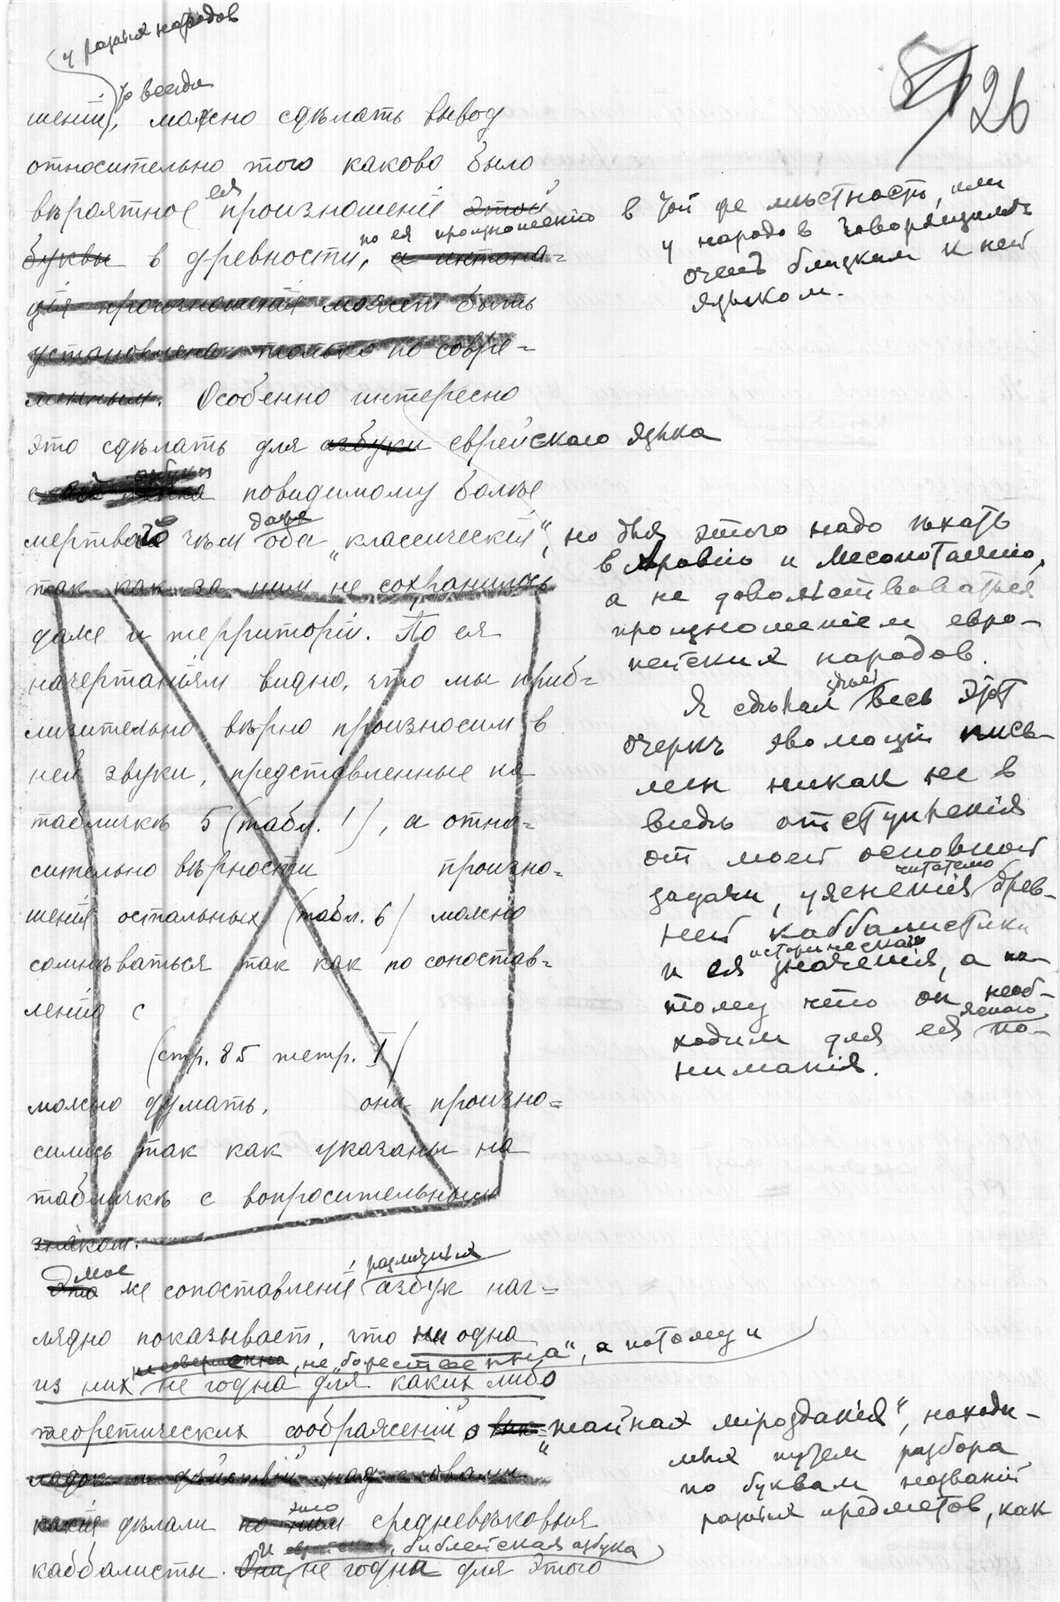 у разныхъ народовъ
26
шенія, можно сдѣлать выводъ
относительно того каково было
вѣроятное ея произношеніе этой
буквы въ древности, по ея произношенію въ той же мѣстности, или
у народовъ говорящихъ
очень близкимъ къ ней
языкомъ.
а интона=
ція произношенія можетъ быть
установлена только по совре=
меннымъ. Особенно интересно
это сдѣлать для азбуки еврейскаго языка
повидимому болѣе
мертваго чѣмъ даже оба „классическія“, но для этого надо ѣхать
въ Аравію и Месопотамію,
а не довольствоваться
произношеніем евро-
пейскихъ народовъ.
такъ какъ за нимъ не сохранилось
даже и территоріи. По ея
начертаніямъ видно, что мы приб=
лизительно вѣрно произносимъ в
ней звуки, представленные на
табличкѣ 5 (табл. 1), а отно=
сительно вѣрности произно=
шенія остальныхъ (табл. 6) можно
сомнѣваться такъ какъ по сопостав=
ленію с
(стр. 85 тетр. I)
можно думать, они произно=
сились такъ какъ указаны на
табличкѣ с вопросительнымъ
знакомъ.
Я сдѣлал здѣсь весь этот
очеркъ эволюціи пись-
менъ никак не в
видѣ отступленія
от моей основной
задачи, уясненія читателю древ-
ней каббалистики
и ея историческаго значенія, а по-
тому что он необ-
ходим для ея яснаго по-
ниманія.
Это же сопоставленіе различныхъ азбукъ наг=
лядно показываетъ, что ни одна
из нихъ не совершенна, не „божественна“, а потому и
не годна для какихъ либо
теоретическихъ соображеній о „тайнах мірозданія“, находи-
мыя путем разбора
по буквам названій
разныхъ предметов, как
дѣлали это средневѣковые
каббалисты. Они и еврейская, библейская азбука не годна для этого